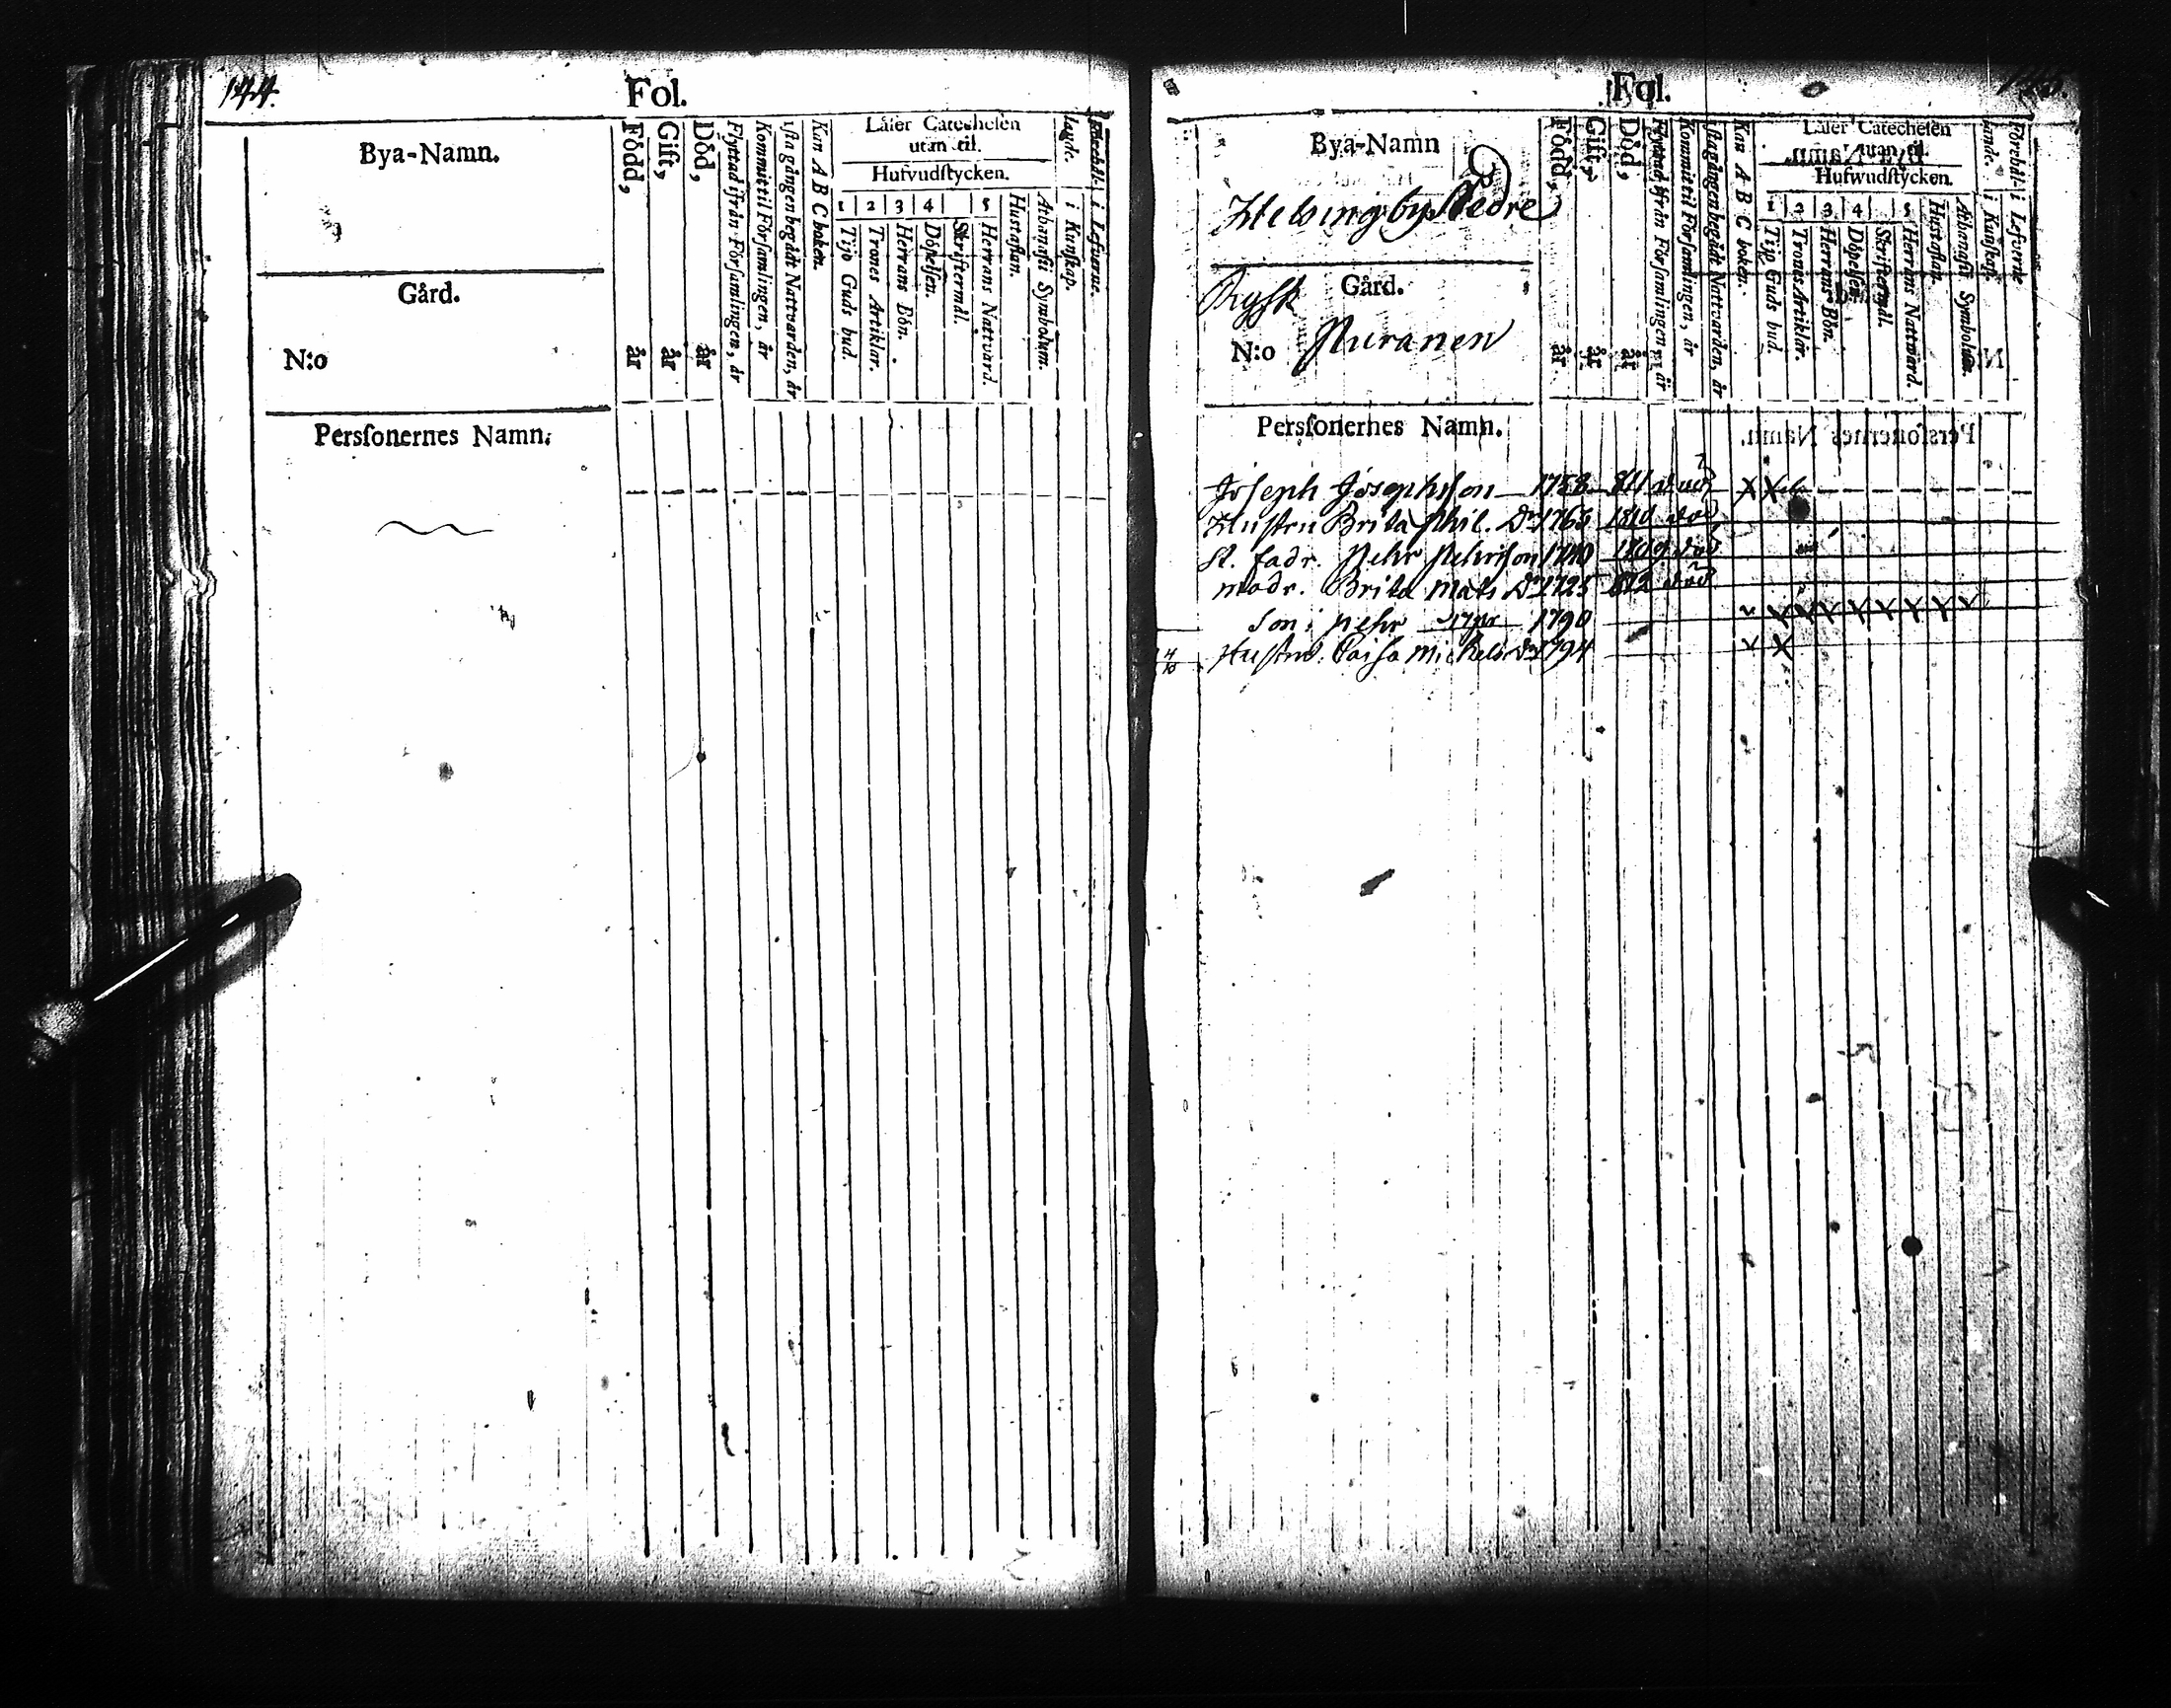 144.
Fol.
Bya-Namn.
Gård.
N:o
Perſonernes Namn.
Född, år
Gift, år
Död, år
Flyttad ifrån Förſamlingen, år
Kommit til Förſamlingen, år
ſta gången begådt Nattvarden, år
Kan A B C boken.
Läſer Catecheſen
utan til.
Hufvudſtycken.
1 2 3 4 5
Tijo Guds bud.
Trones Artiklar.
Herrans Bön.
Döpelſen.
Skriftermål.
Herrans Nattvard.
Huſtaflan.
Athanaſii Symbolum.
i Kunſkap.
i Lefverne.
Fol.
Bya-Namn
Helsingby Nedre
Gård.
Rysk
N:o Puranen
Perſonernes Namn.
Född, år
Gift, år
Död, år
Flyttad ifrån Förſamlingen, år
Kommit til Förſamlingen, år
ſta gången begådt Nattvarden, år
Kan A B C boken.
Läſer Catecheſen
utan til.
Hufwudſtycken.
1 2 3 4 5
Tijo Guds bud.
Trones Artiklar.
Herrans Bön.
Döpelſen.
Skriftermål.
Herrans Nattvard.
Huſtaflan.
Athanaſii Symbolum.
i Kunſkap.
i Lefverne
Joſeph Josephſson 1758 811 död X X
Huſtru Brita Phil. Dr 1765 1810 död
St. fadr. Pehr Pehrſson 1740 1809 död
modr. Brita Mats Dr 1725 812 död
Son: Pehr 1790 X X X X X X X
Huſtru: Caiſa Michels Dr 1794 X X